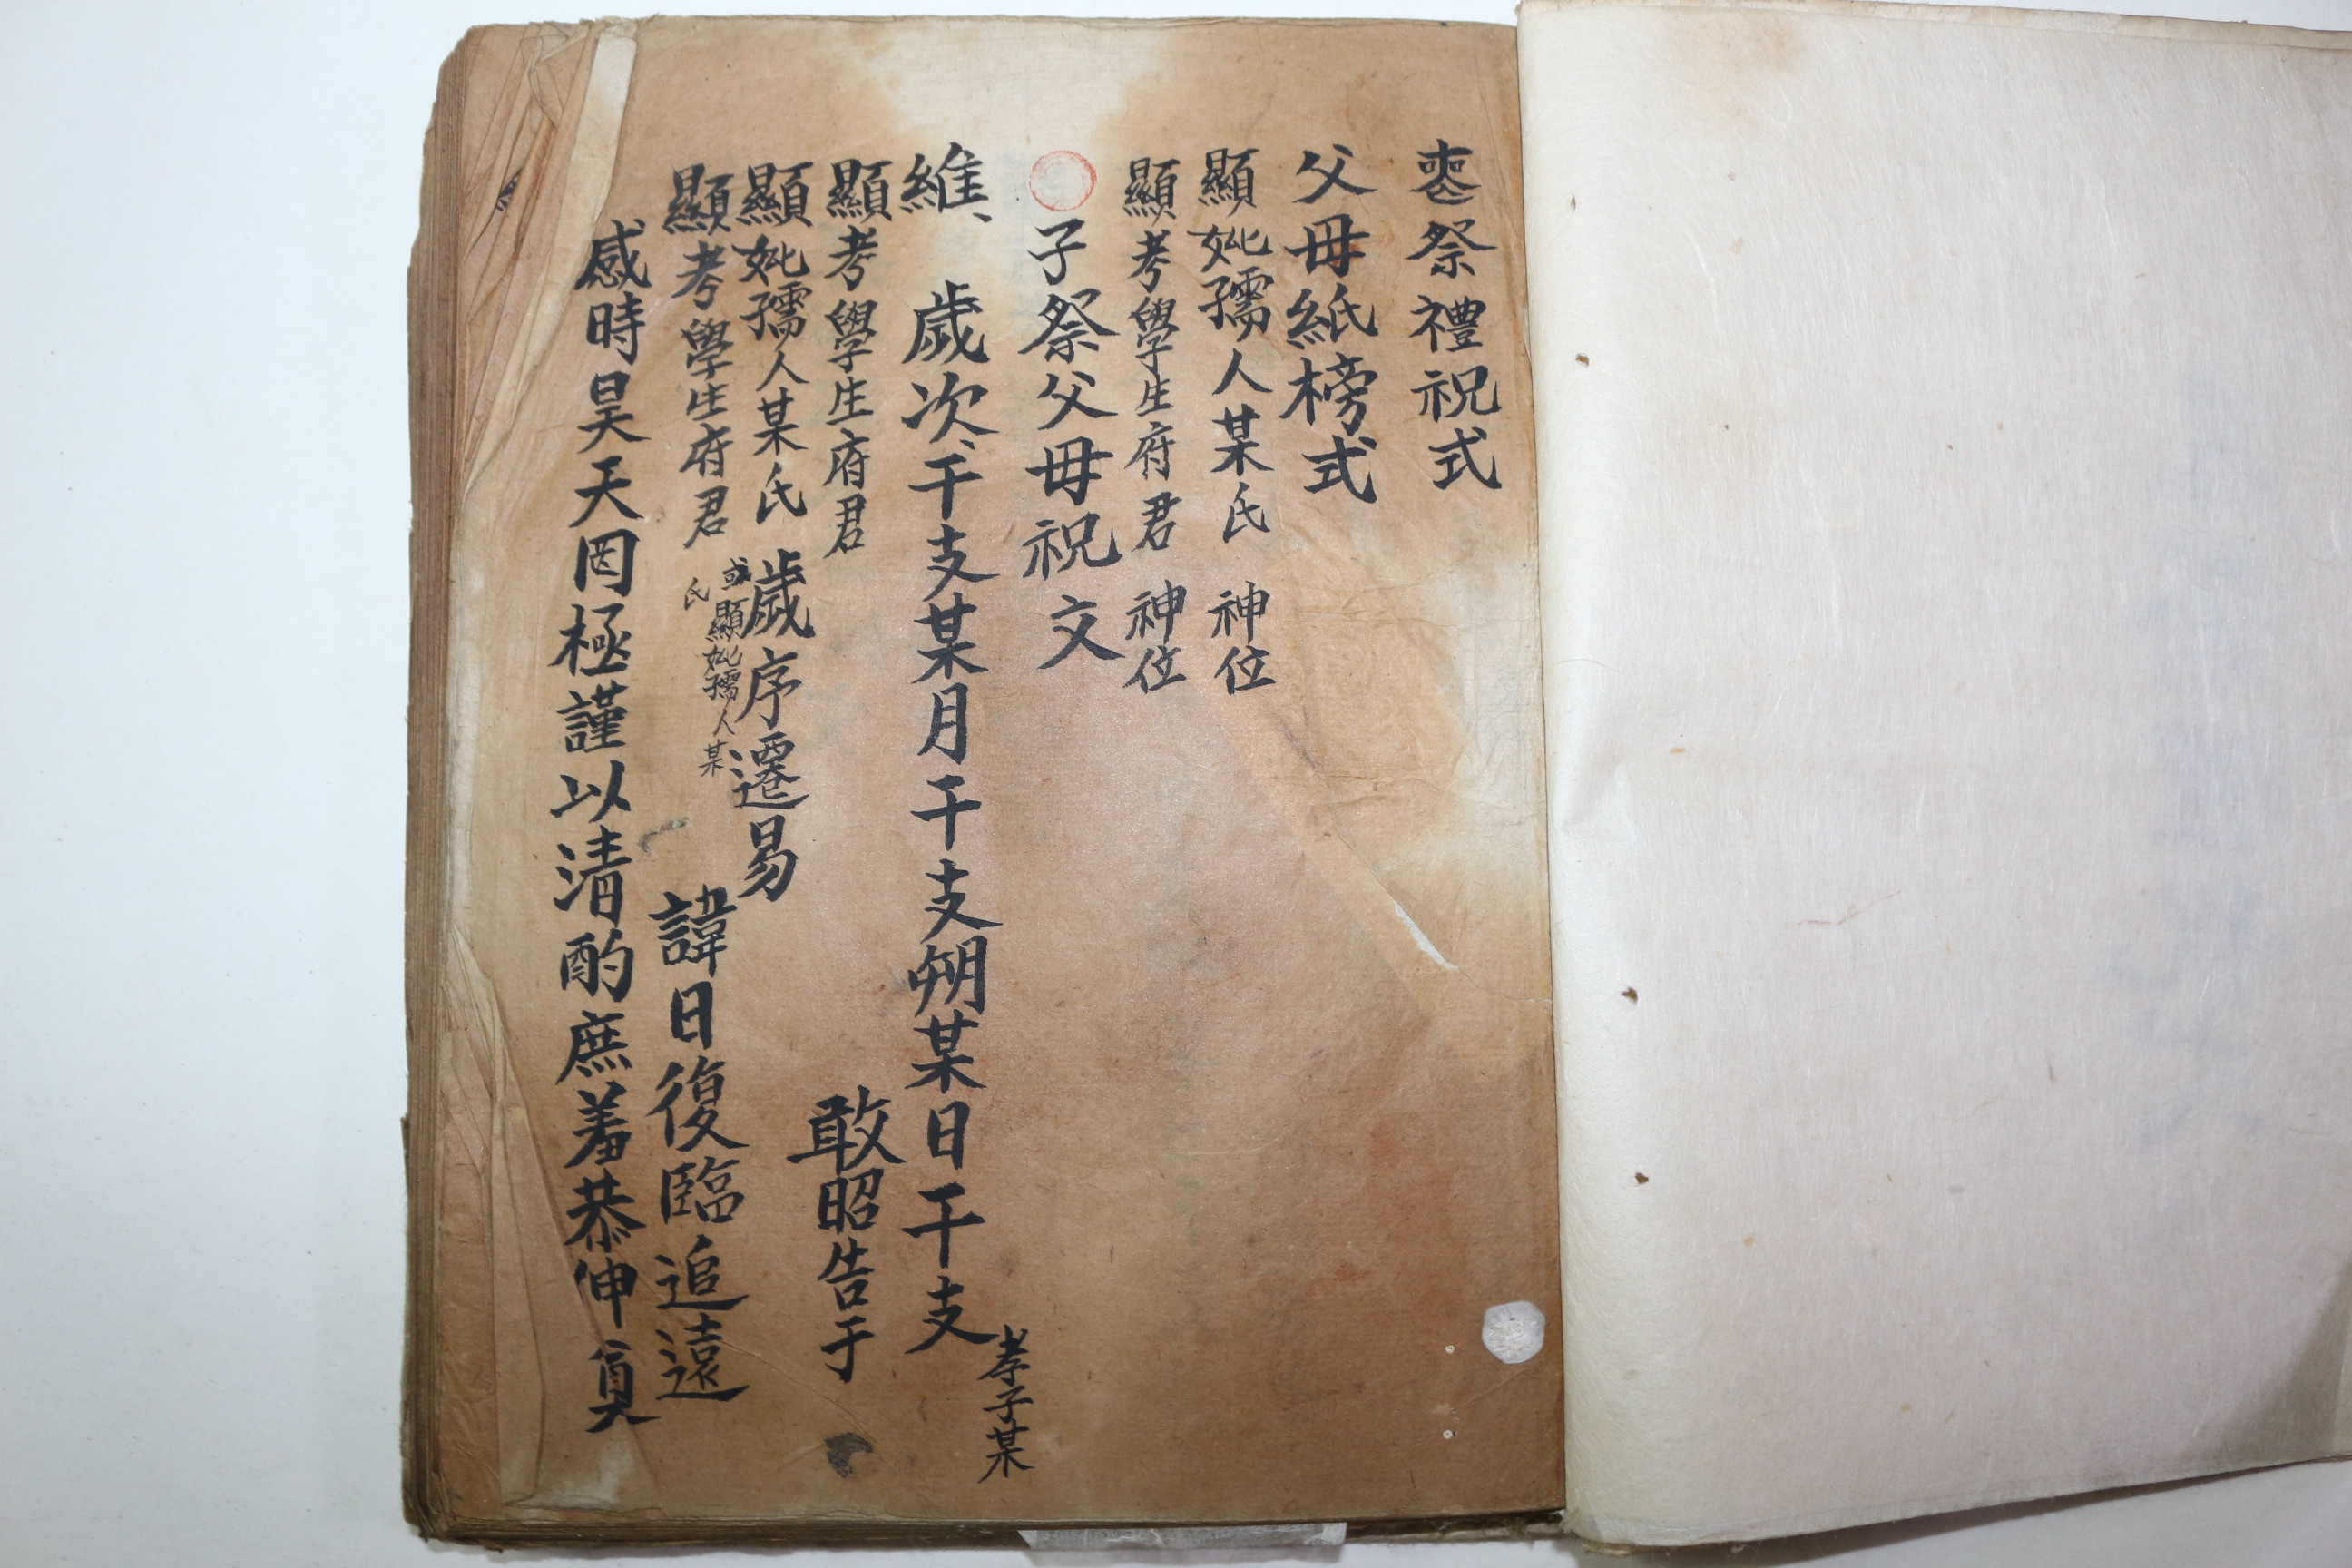 喪祭禮祝式
父母紙榜式
顯妣孺人某氏 神位
顯考學生府君 神位
子祭父母祝文
維、 歲次、干支某月干支朔某日干支 孝子某
敢昭告于
顯考學生府君
顯妣孺人某氏 歲序遷易
顯考學生府君 或顯妣孺人某氏 諱日復臨追遠
感時昊天罔極謹以清酌庶羞恭伸奠